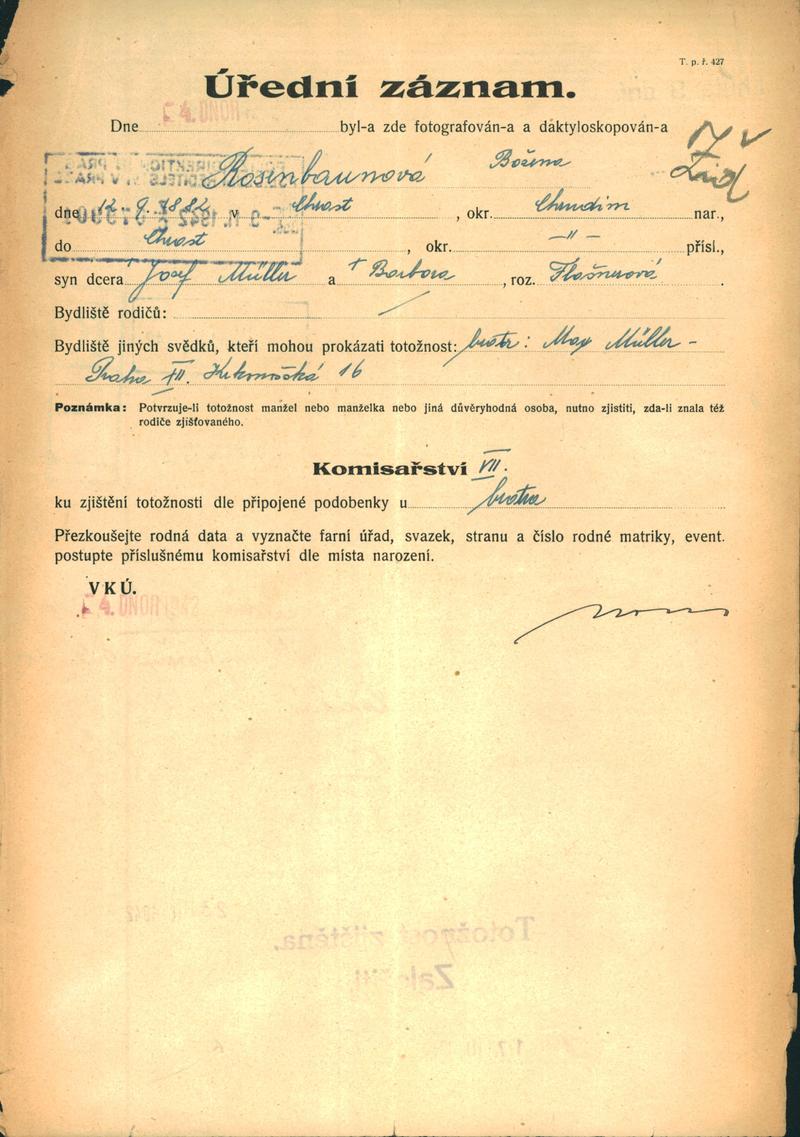 T. p. ř. 427
Úřední záznam.
4. ÚNOR
Dne byl-a zde fotografován-a a daktyloskopován-a
Žid
Rosenbaunová Božena
dne 12. 9. 1882 v Chrast, okr. Chrudim nar.,
do Chrast, okr. -"- přísl.,
syn dcera Josef Müller a † Barbora, roz. Flašnerová.
Bydliště rodičů:
Bydliště jiných svědků, kteří mohou prokázati totožnost: bratr: Max Müller -
Praha XII. Krkonošská 16
Poznámka: Potvrzuje-li totožnost manžel nebo manželka nebo jiná důvěryhodná osoba, nutno zjistiti, zda-li znala též
rodiče zjišťovaného.
Komisařství VII.
ku zjištění totožnosti dle připojené podobenky u bratra
Přezkoušejte rodná data a vyznačte farní úřad, svazek, stranu a číslo rodné matriky, event.
postupte příslušnému komisařství dle místa narození.
VKÚ.
4. ÚNOR 1942
Totožnost zjištěna.